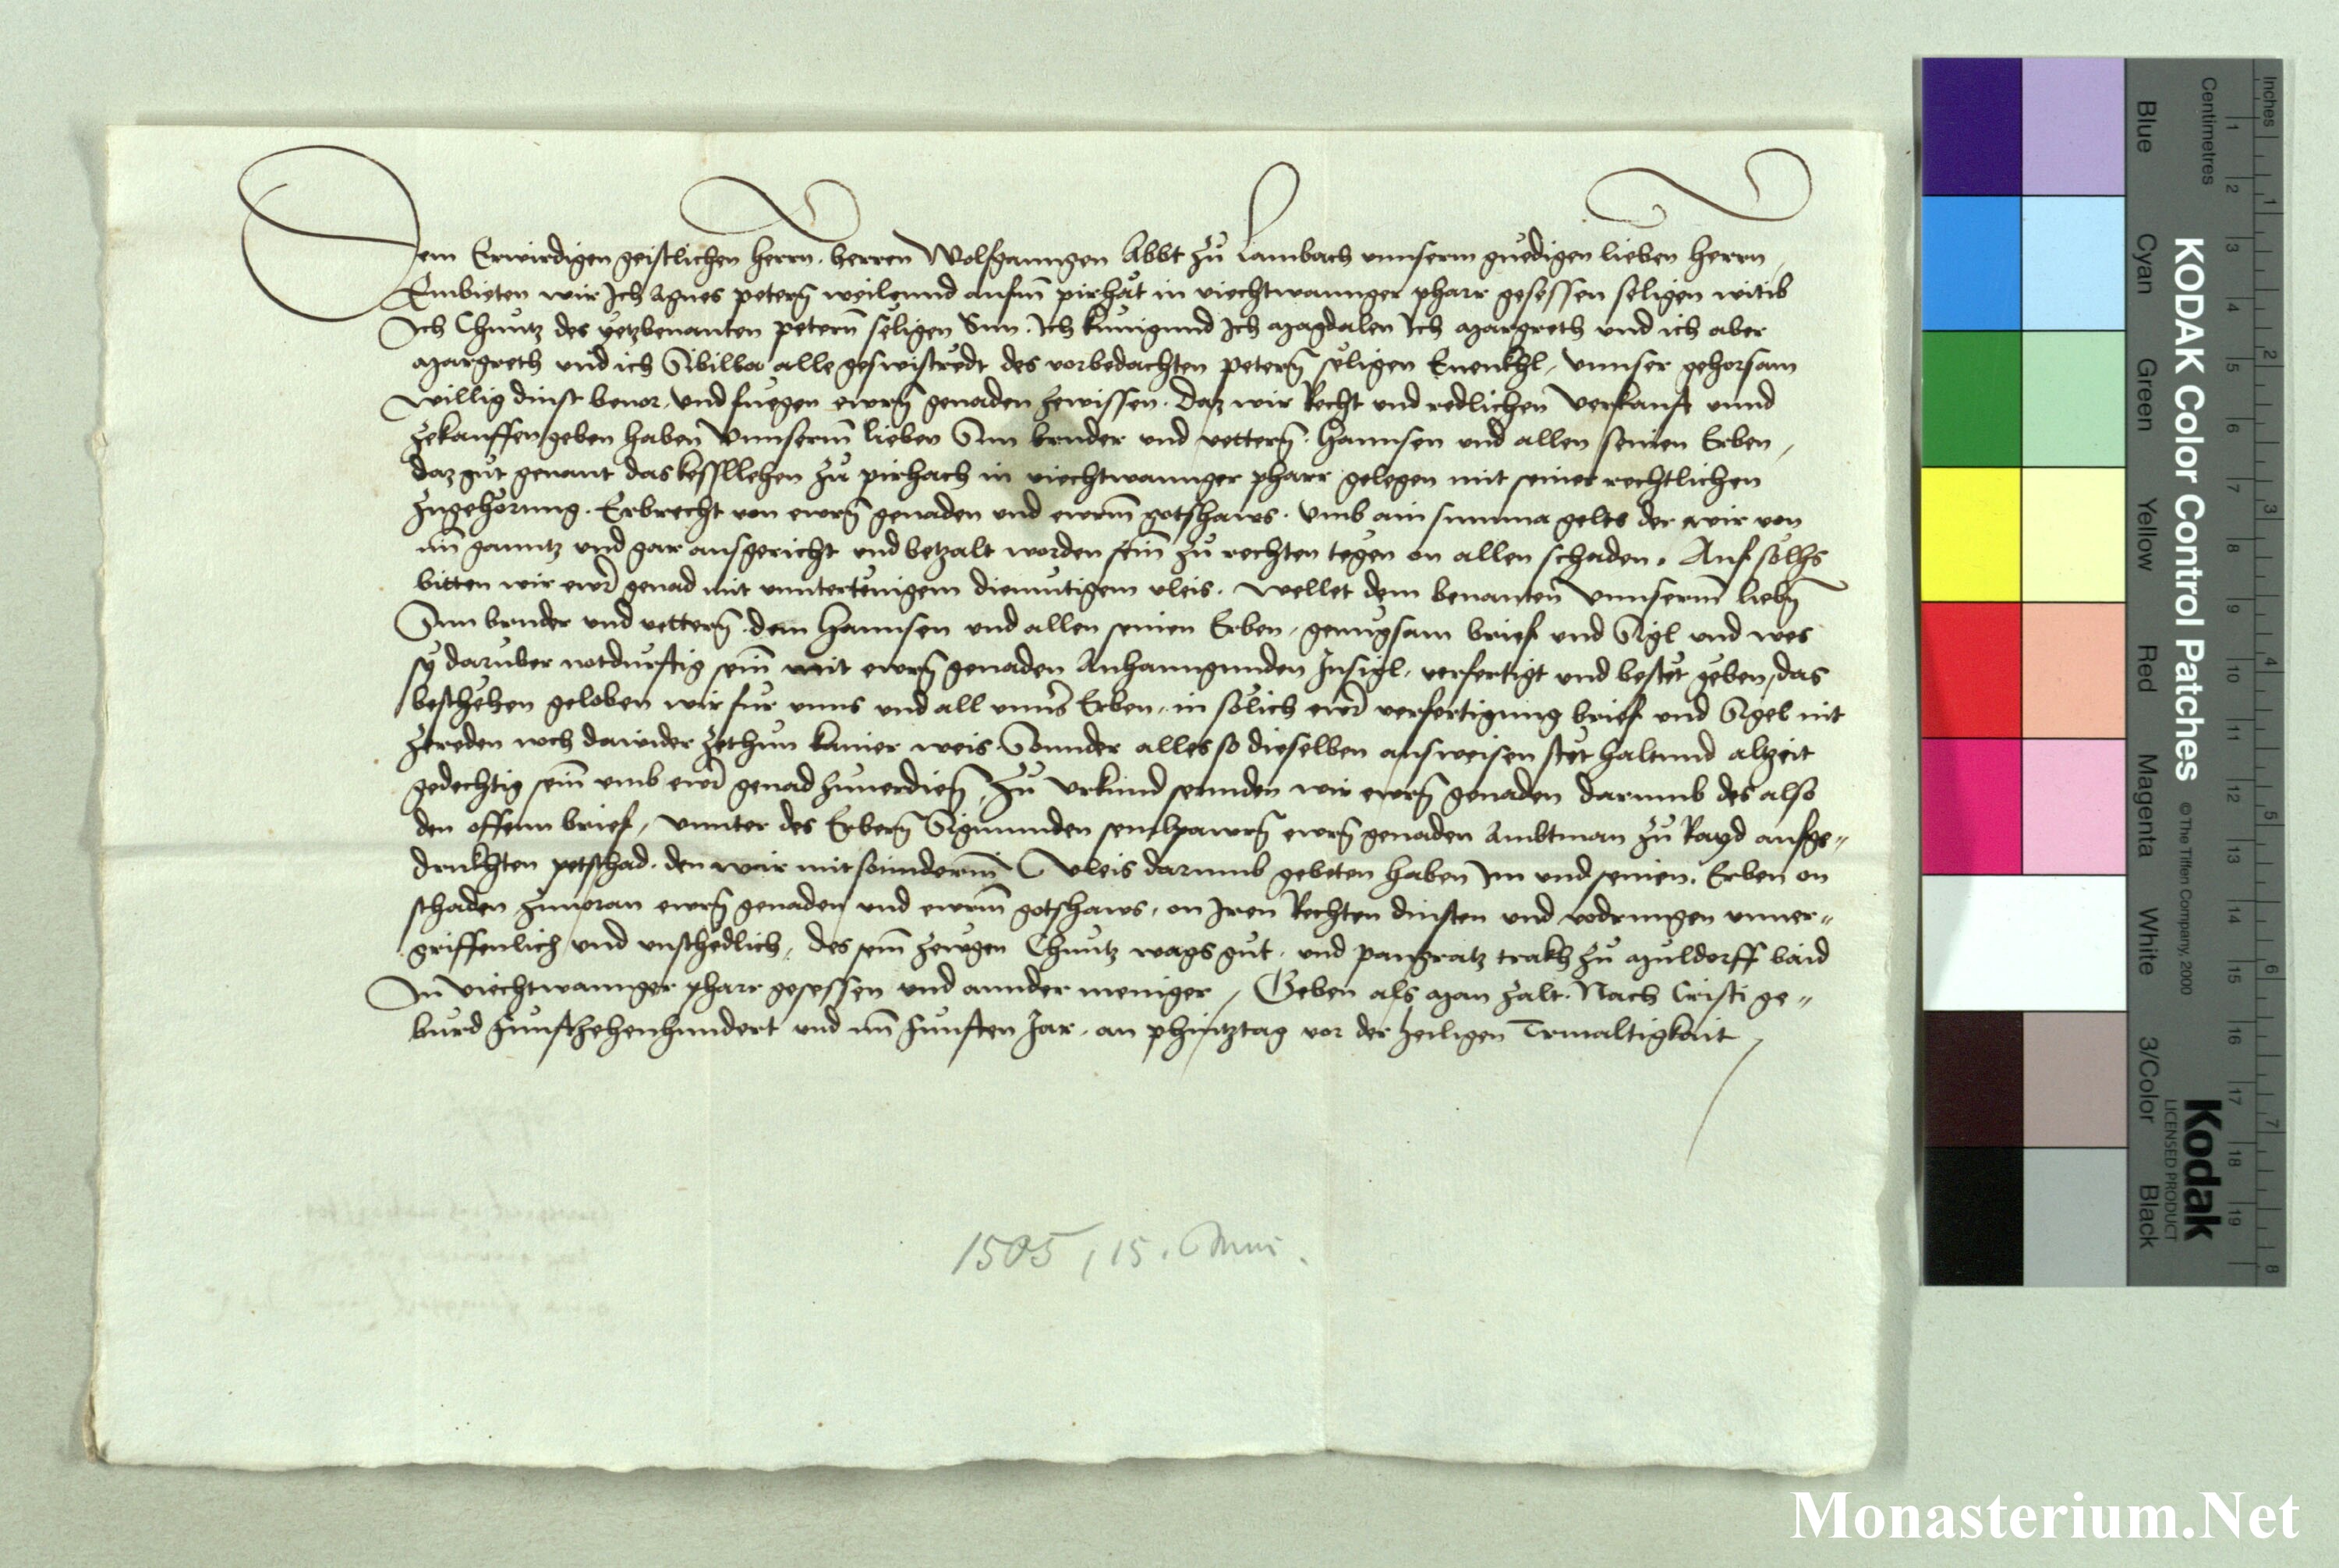 Dem Erwirdigen geistlichen herrn, herren Wolfganngen Abbt zů Lambach unnserm gnedigen lieben herrn,
Embieten wir Ich Agnes petern̄ weilennd aufm̄ pirhåt in viechtwannger pharr gesessen seligen witib
Ich Chuntz des yetzbenanten petern̄ seligen Sun. Ich kunigund Ich Magdalen Ich Margreth und ich aber
Margreth und ich Sibilla alle geswistredt des vorbedachten petern̄ seligen Enenkhl, Unnser gehorsam
willig dinst bevor, und fuegen ewrn̄ genaden zewissen. Daz wir Recht und redlichen verkauft unnd
zekauffen geben haben Unnserm̄ lieben Sun bruder und vettern̄. Hannsen und allen seinen Erben,
daz gůt genant das kessllehen zů pirhach in viechtwannger pharr gelegen mit seiner rechtlichen
zugehorung. Erbrecht von ewrn̄ genaden und ewrm̄ gotshaws. Umb ain summa gelts der wir von
im̄ ganntz und gar ausgericht und betzalt worden sein̄ zů rechten tegen on allen schaden. Auf solhs
bitten wir ewr̄ genad mit unntertenigem diemutigem vleis. Wellet dem benanten̄ Unnserm̄ liebn̄
Sun bruder und vettern̄. dem Hannsen und allen seinen Erben, genugsam brief und Sigl und wes
sy daruber notdurftig sein̄ mit ewrn̄ genaden Anhanngunden Insigl, verfertigt und bestet geben, das
beschehen geloben wir fur unns und all unns̄ Erben, in solich ewr̄ verfertigung brief und Sigel nit
zereden noch dawider zethun kainer weis. Sonnder alles so dieselben ausweisen stet haltund altzeit
gedechtig sein̄ umb ewr̄ genad zuverdien̄, Zů Urkund sennden wir ewrn̄ genaden darumb des also
den offenn brief, unnter des Erbern̄ Sigmunden ewrn̄ genaden Ambtman zů Rayd aufge„
drukhten petschad. den wir mit sonnderm̄ Vleis darumb gebeten haben Im und seinen. Erben on
schaden zuvoran ewrn̄ genaden und ewrm̄ gotshaws, on Iren Rechten dinsten und vodrungen unver„
griffenlich und unschedlich, des sein̄ zewgen Chuntz wagsgut, und pangratz trakh zů Muldorff baid
In viechtwannger pharr gesessen und annder meniger, Geben als Man zalt. Nach Cristi ge„
burd Funfzehenhundert und im̄ Funften Jar, an phintztag vor der heiligen Trivaltigkait,
1505, 15. Mai.
KODAK Color Control Patches
© The Tiffen Company, 2000
Kodak
LICENSED PRODUCT
Inches
Centimetres
1 2 3 4 5 6 7 8
1 2 3 4 5 6 7 8 9 10 11 12 13 14 15 16 17 18 19
Blue
Cyan
Green
Yellow
Red
Magenta
White
3/Color
Black
Monasterium.Net